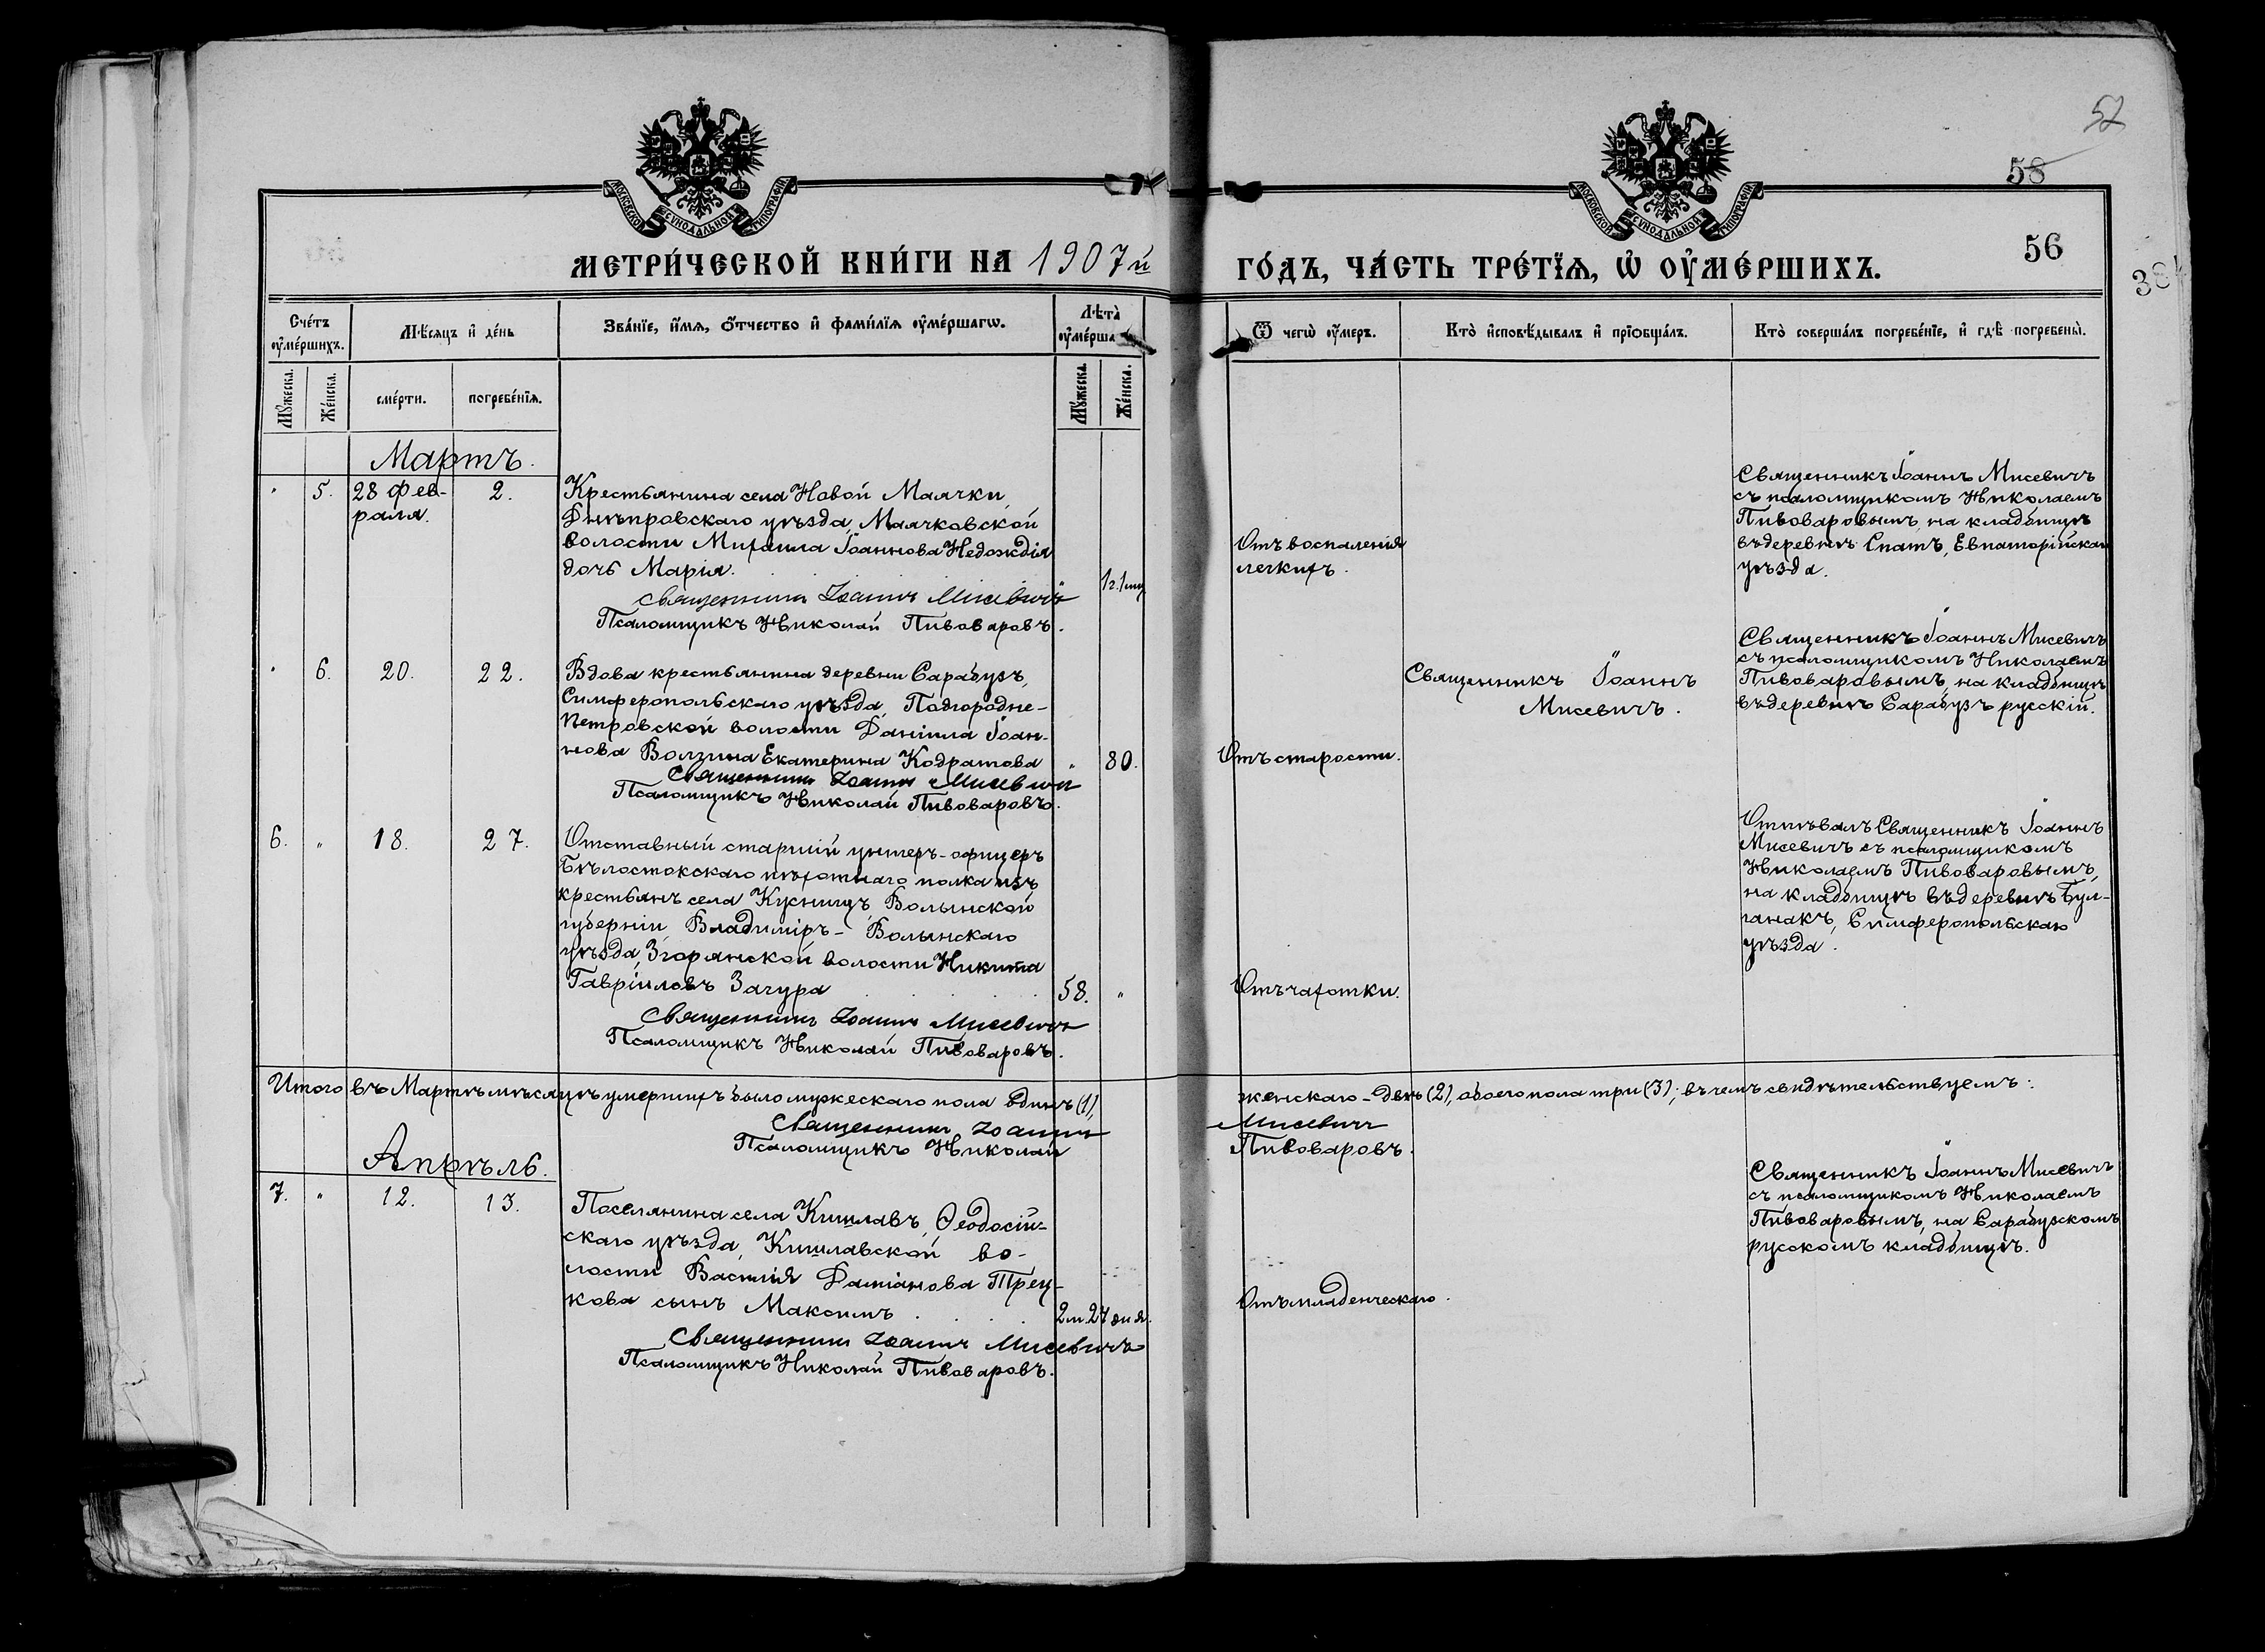 52
58
МОСКОВСКОЙ СѴНОДАЛЬНОЙ ТИПОГРАФІИ
МОСКОВСКОЙ СѴНОДАЛЬНОЙ ТИПОГРАФІИ
МЕТРИ́ЧЕСКОЙ КНИ́ГИ НА 1907й
ГО́ДЪ, ЧА́СТЬ ТРЕ́ТЇѦ, Ѽ ОУ҆МЕ́РШИХЪ.
56
Сче́тъ оу҆ме́ршихъ.
Мѣ́сяцъ и҆ де́нь
Зва́нїе, и҆́мѧ, ѻ҆́тчество и҆ фами́лїѧ оу҆ме́ршагѡ.
Лѣ́та̀ оу҆ме́рша
Ѿ чегѡ̀ оу҆́меръ.
Кто̀ и҆сповѣ́дывалъ и҆ прїѡбща́лъ.
Кто̀ соверша́лъ погребе́нїе, и҆ гдѣ̀ погребены̀.
Мꙋ́жеска.
Же́нска.
сме́рти.
погребе́нїѧ.
Мꙋ́жеска.
Же́нска.
Мартъ.
" 5. 28 фев-
раля. 2.
Крестьянина села Новой Маячки,
Днѣпровскаго уѣзда, Маячковской
волости Михаила Іоаннова Недождія
дочь Марія. 1г.1мц
Священникъ Іоаннъ Мисевичъ
Псаломщикъ Николай Пивоваровъ.
Отъ воспаленія
легкихъ.
Священникъ Іоаннъ Мисевичъ
съ псаломщикомъ Николаемъ
Пивоваровымъ, на кладбищѣ
въ деревнѣ Спатъ, Евпаторійскаго
уѣзда.
" 6. 20. 22.
Вдова крестьянина деревни Сарабузъ,
Симферопольскаго уѣзда, Подгородне-
Петровской волости Даніила Іоан-
нова Волгина Екатерина Кодратова " 80.
Священникъ Іоаннъ Мисевичъ
Псаломщикъ Николай Пивоваровъ.
Отъ старости.
Священникъ Іоаннъ
Мисевичъ.
Священникъ Іоаннъ Мисевичъ
съ псаломщикомъ Николаемъ
Пивоваровымъ, на кладбищѣ
въ деревнѣ Сарабузъ русскій.
6. " 18. 27.
Отставный старшій унтеръ-офицеръ
Бѣлостокскаго пѣхотнаго полка изъ
крестьянъ села Куснищъ Волынской
губерніи, Владиміръ-Волынскаго
уѣзда, Згорянской волости Никита
Гавріиловъ Загура 58. "
Священникъ Іоаннъ Мисевичъ
Псаломщикъ Николай Пивоваровъ.
Отъ чахотки.
Отпѣвалъ Священникъ Іоаннъ
Мисевичъ съ псаломщикомъ
Николаемъ Пивоваровымъ,
на кладбищѣ въ деревнѣ Бул-
ганакъ, Симферопольскаго
уѣзда.
Итого въ Мартѣ мѣсяцѣ умершихъ было мужескаго пола одинъ (1),
женскаго - двѣ (2), обоего пола три (3); въ чемъ свидѣтельствуемъ:
Священникъ Іоаннъ Мисевичъ
Псаломщикъ Николай Пивоваровъ.
Апрѣль.
7. " 12. 13.
Поселянина села Кишлавъ, Ѳеодосій-
скаго уѣзда, Кишлавской во-
лости Василія Даміанова Трец-
кова сынъ Максимъ 2м.27 дня.
Священникъ Іоаннъ Мисевичъ
Псаломщикъ Николай Пивоваровъ.
Отъ младенческаго.
Священникъ Іоаннъ Мисевичъ
съ псаломщикомъ Николаемъ
Пивоваровымъ, на Сарабузскомъ
русскомъ кладбищѣ.